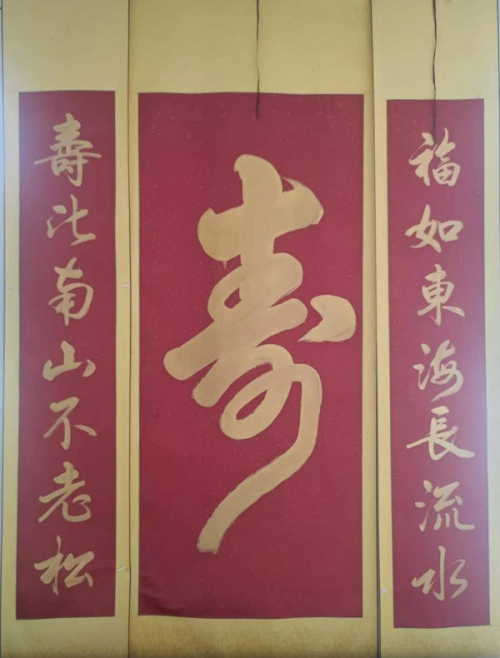 福如東海長流水
寿
壽比南山不老松